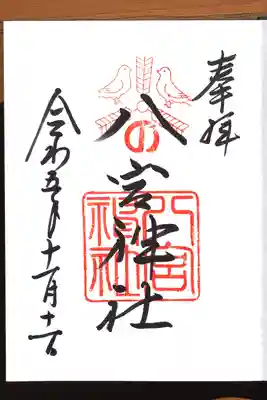 奉拝
八宮神社
八宮神社
令和五年十一月十一日